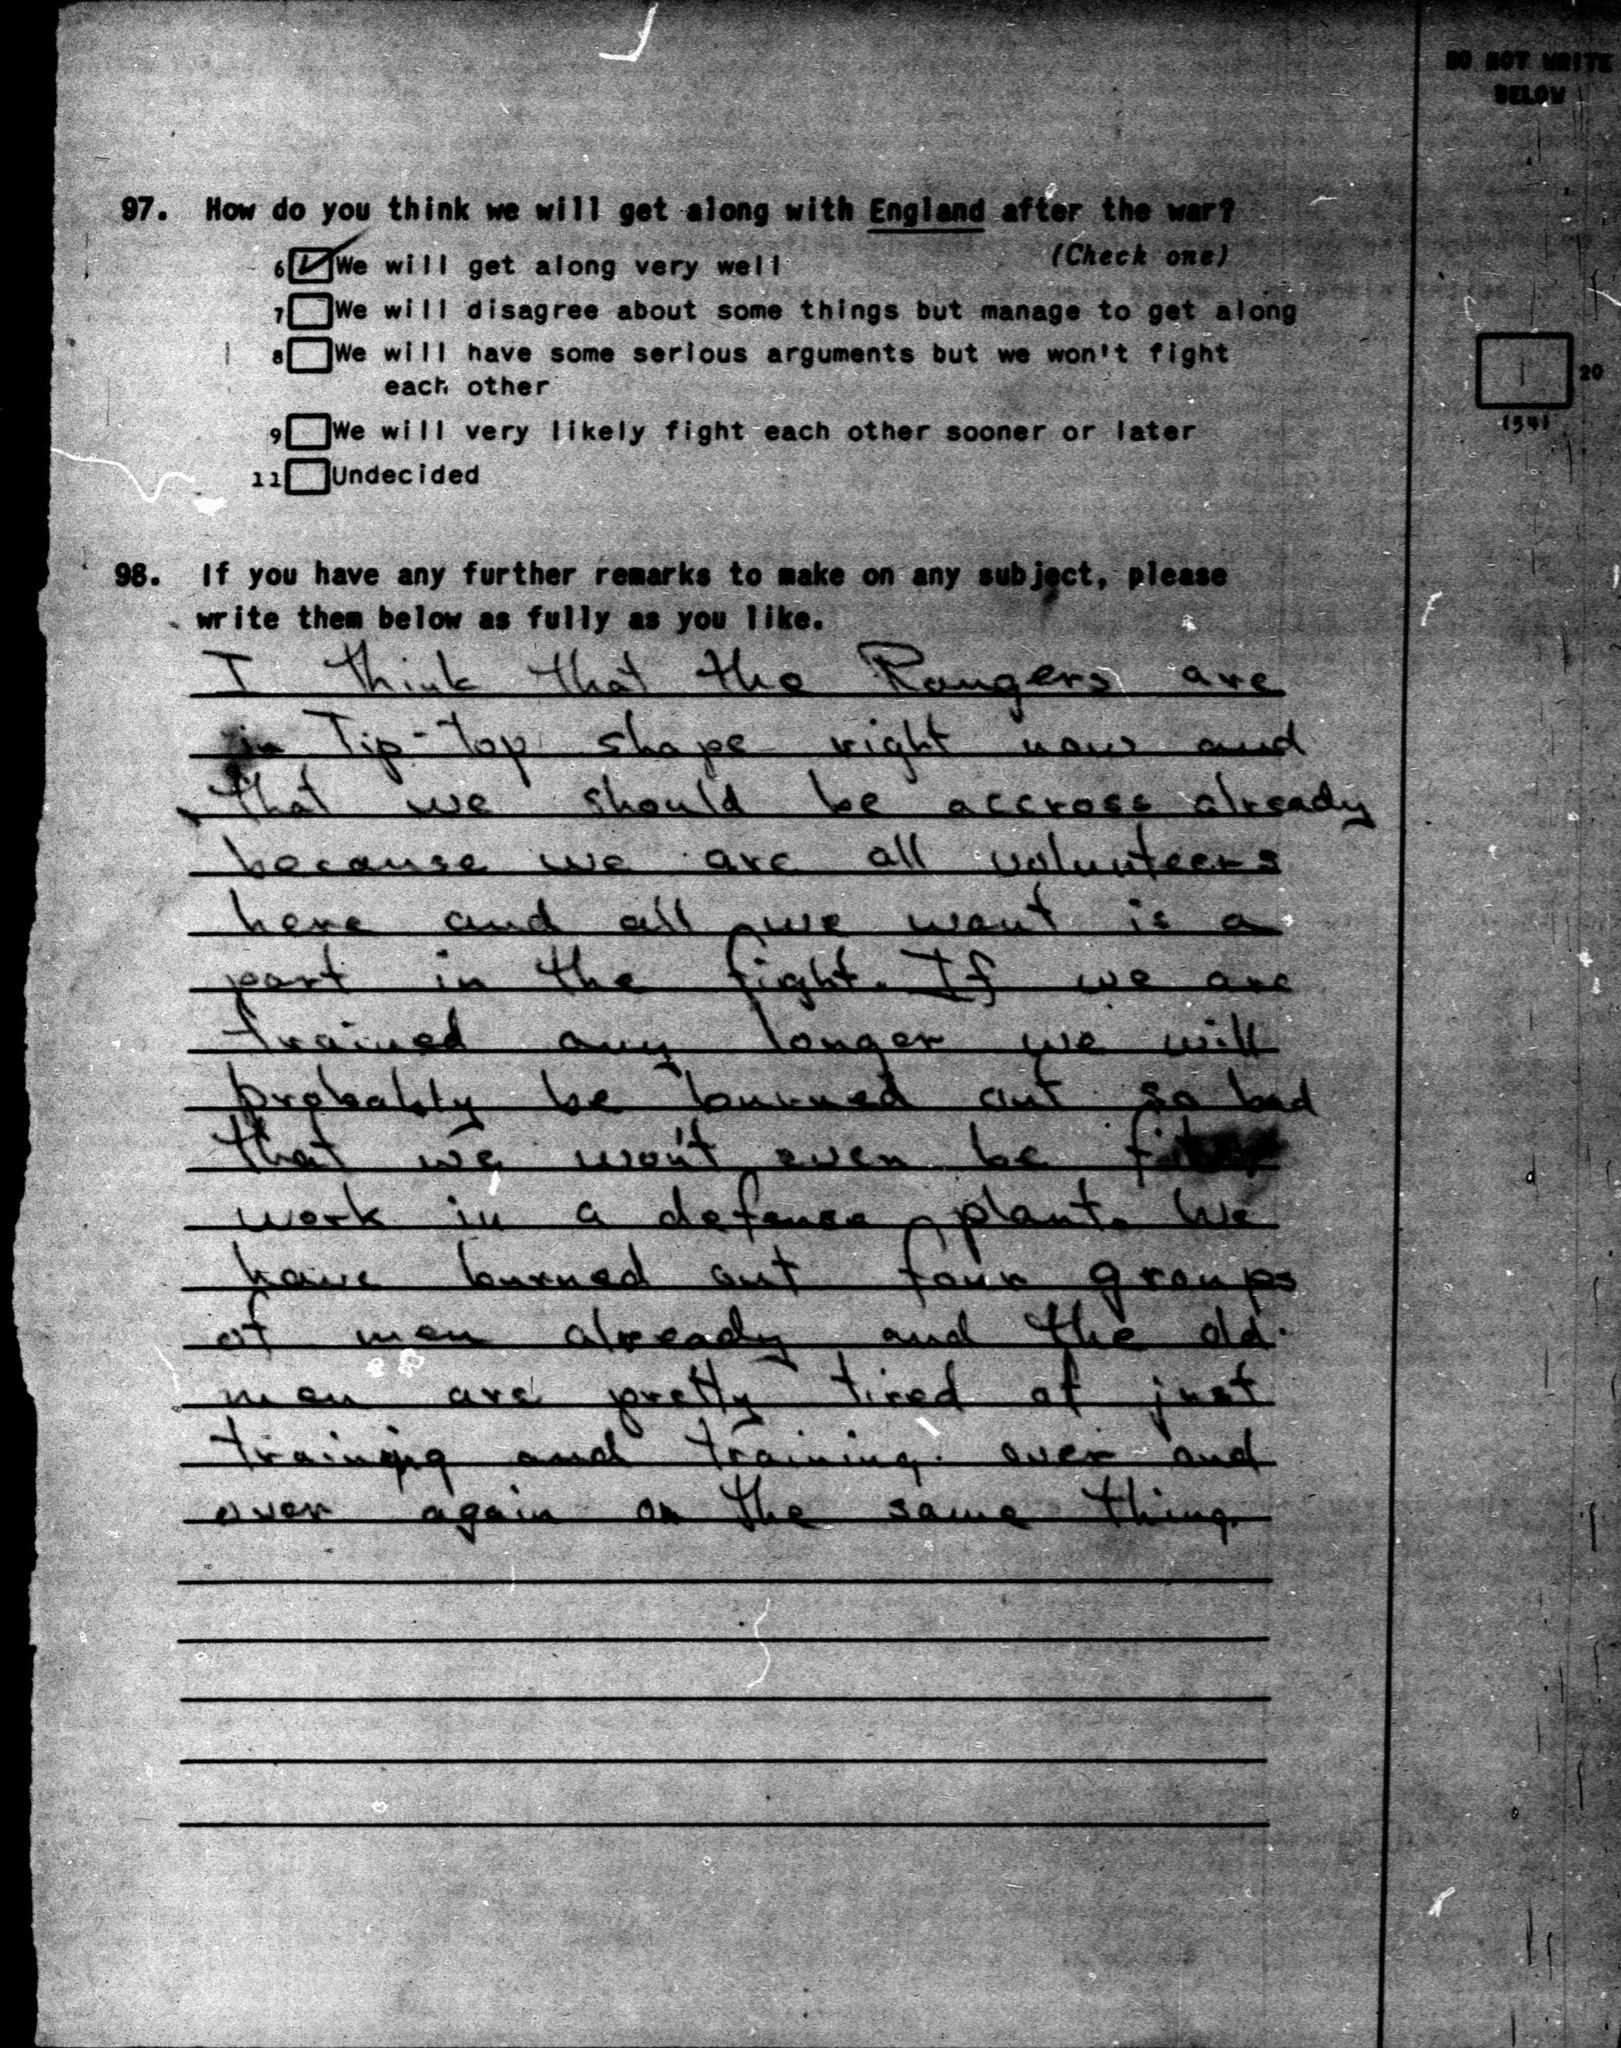 DO NOT WRITE
BELOW
97. How do you think we will get along with England after the war?
(Check one)
6 We will get along very well
7 We will disagree about some things but manage to get along
8 We will have some serious arguments but we won't fight
each other
9 We will very likely fight each other sooner or later
11 Undecided
20
(54)
98. If you have any further remarks to make on any subject, please
write them below as fully as you like.
I think that the Rangers are
in Tip-Top shape right now and
that we should be accross already
because we are all volunteers
here and all we want is a
part in the fight. If we are
trained any longer we will
probably be burned out so bad
that we won't even be fit
work in a defense plant. We
have burned out four groups
of men already and the old
men are pretty tired of just
training and training over and
over again on the same thing.